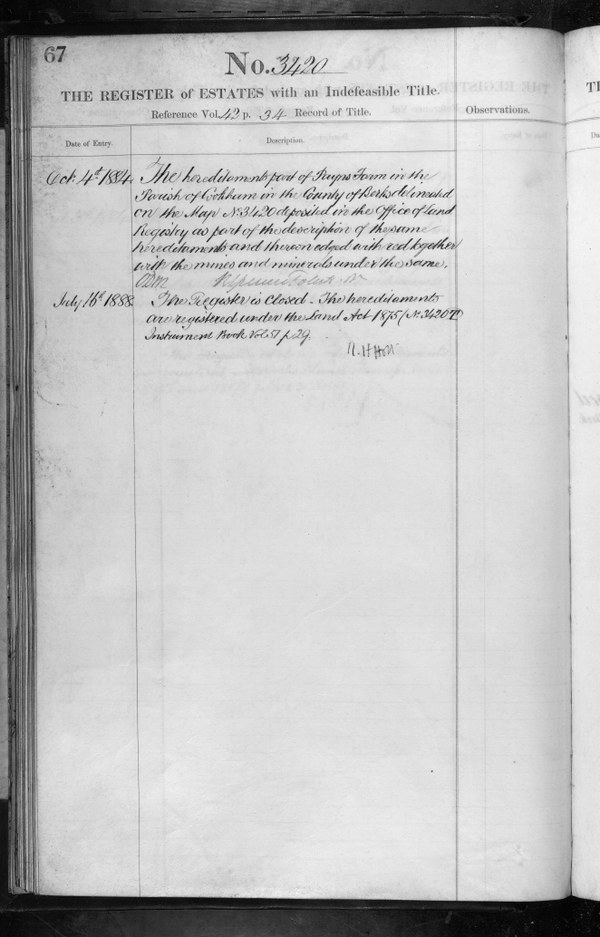 67
No. 3420
THE REGISTER of ESTATES with an Indefeasible Title.
Reference Vol. 42 p. 34 Record of Title.
Observations.
Date of Entry.
Description.
Oct. 4th 1884.
The hereditaments part of Farm in the
Parish of Cookham in the County of Berks delineated
on the Map No. 3420 deposited in the Office of Land
Registry as part of the description of the same
hereditaments and thereon edged with red together
with the mines and minerals under the same.
July 16th 1888.
The Register is closed. The hereditaments
are registered under the Land Act 1875 (No. 3420
Instrument Book Vol 57 p. 29.
R. H. Holt
TI
Da